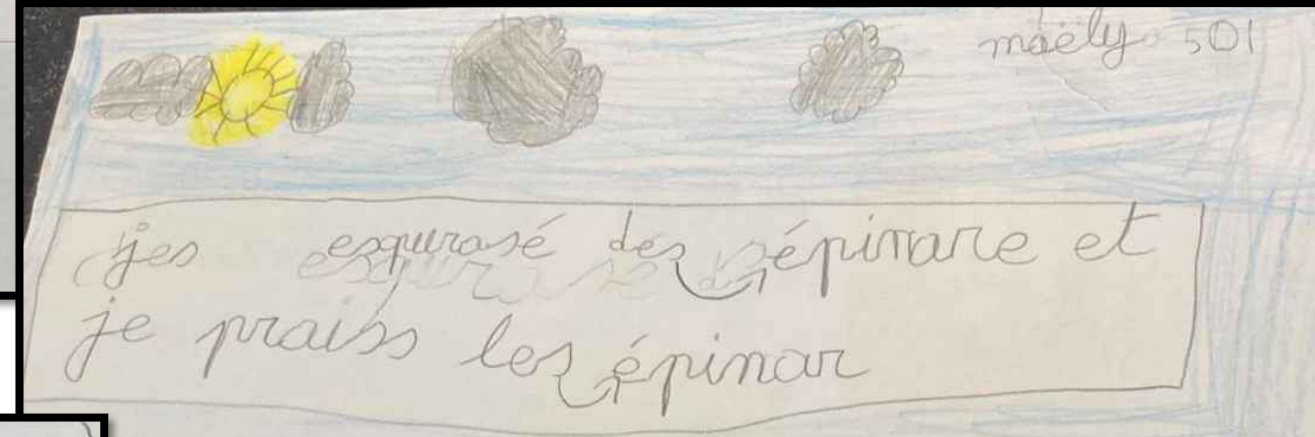 maëly 501
jes esqurasé des épinare et
je praiss les épinar